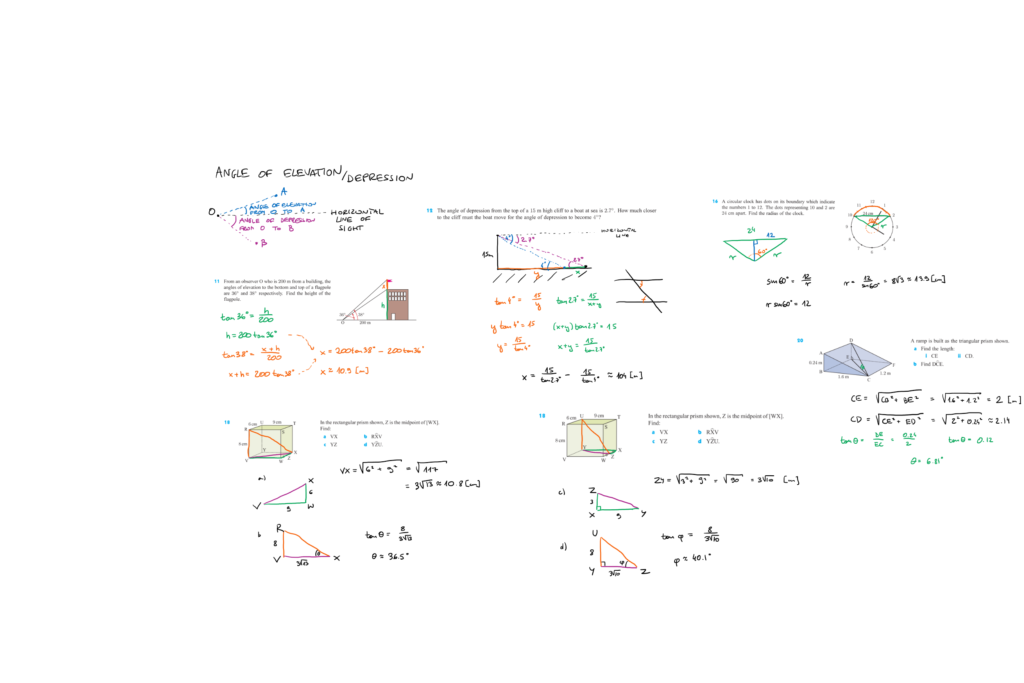 ANGLE OF ELEVATION/DEPRESSION
A
O
ANGLE OF ELEVATION
FROM O TO A
ANGLE OF DEPRESSION
FROM O TO B
B
HORIZONTAL
LINE OF
SIGHT
11 From an observer O who is 200 m from a building, the
angles of elevation to the bottom and top of a flagpole
are 36° and 38° respectively. Find the height of the
flagpole.
38°
36°
O
200 m
x
h
tan 36° = h/200
h = 200 tan 36°
tan 38° = x+h/200
x+h = 200 tan 38°
x = 200 tan 38° - 200 tan 36°
x ≈ 10.9 [m]
13 The angle of depression from the top of a 15 m high cliff to a boat at sea is 2.7°. How much closer
to the cliff must the boat move for the angle of depression to become 4°?
HORIZONTAL
LINE
15m
4°
2.7°
4°
2.7°
y
x
tan 4° = 15/y
tan 2.7° = 15/x+y
y tan 4° = 15
(x+y) tan 2.7° = 15
y = 15/tan 4°
x+y = 15/tan 2.7°
x = 15/tan 2.7° - 15/tan 4° ≈ 104 [m]
14 A circular clock has dots on its boundary which indicate
the numbers 1 to 12. The dots representing 10 and 2 are
24 cm apart. Find the radius of the clock.
24
12
60°
r
r
24 cm
sin 60° = 12/r
r = 12/sin 60° = 8√3 ≈ 13.9 [cm]
r sin 60° = 12
20
A ramp is built as the triangular prism shown.
a Find the length:
i CE
ii CD.
b Find DĈE.
A
B
C
D
E
F
0.24 m
1.6 m
1.2 m
CE = √CB² + BE² = √1.6² + 1.2² = 2 [m]
CD = √CE² + ED² = √2² + 0.24² ≈ 2.01
tan θ = DE/EC = 0.24/2
tan θ = 0.12
θ ≈ 6.81°
18
6 cm
9 cm
8 cm
U
T
R
S
Y
X
V
W
Z
In the rectangular prism shown, Z is the midpoint of [WX].
Find:
a VX
b RX̂V
c YZ
d YẐU.
a)
X
6
V
9
W
VX = √6² + 9² = √117
= 3√13 ≈ 10.8 [cm]
b
R
8
θ
V
3√13
X
tan θ = 8/3√13
θ ≈ 36.5°
18
6 cm
9 cm
8 cm
U
T
R
S
Y
X
V
W
Z
In the rectangular prism shown, Z is the midpoint of [WX].
Find:
a VX
b RX̂V
c YZ
d YẐU.
c)
Z
3
X
9
Y
ZY = √3² + 9² = √90 = 3√10 [cm]
d)
U
8
φ
Y
3√10
Z
tan φ = 8/3√10
φ ≈ 40.1°